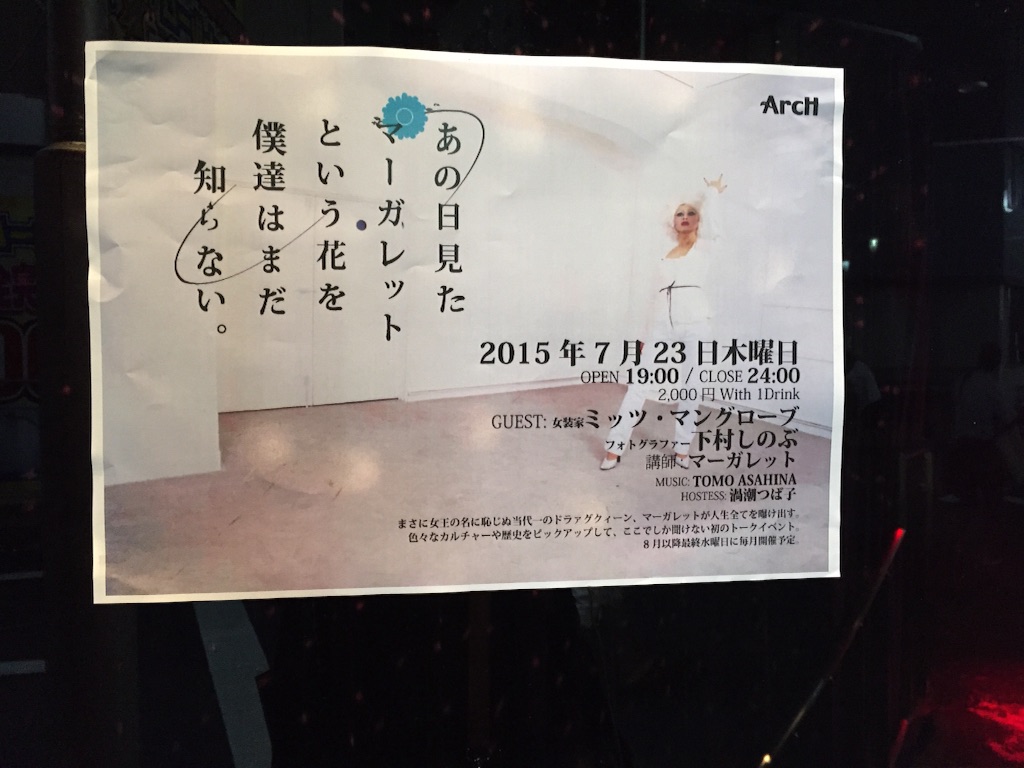 ArcH
あの日見た
マーガレット
という花を
僕達はまだ
知らない。
2015年7月23日木曜日
OPEN 19:00 / CLOSE 24:00
2,000円 With 1Drink
GUEST: 女装家ミッツ・マングローブ
フォトグラファー下村しのぶ
講師:マーガレット
MUSIC: TOMO ASAHINA
HOSTESS: 渦潮つば子
まさに女王の名に恥じぬ当代一のドラァグクィーン、マーガレットが人生全てを曝け出す。
色々なカルチャーや歴史をピックアップして、ここでしか聞けない初のトークイベント。
8月以降最終水曜日に毎月開催予定。